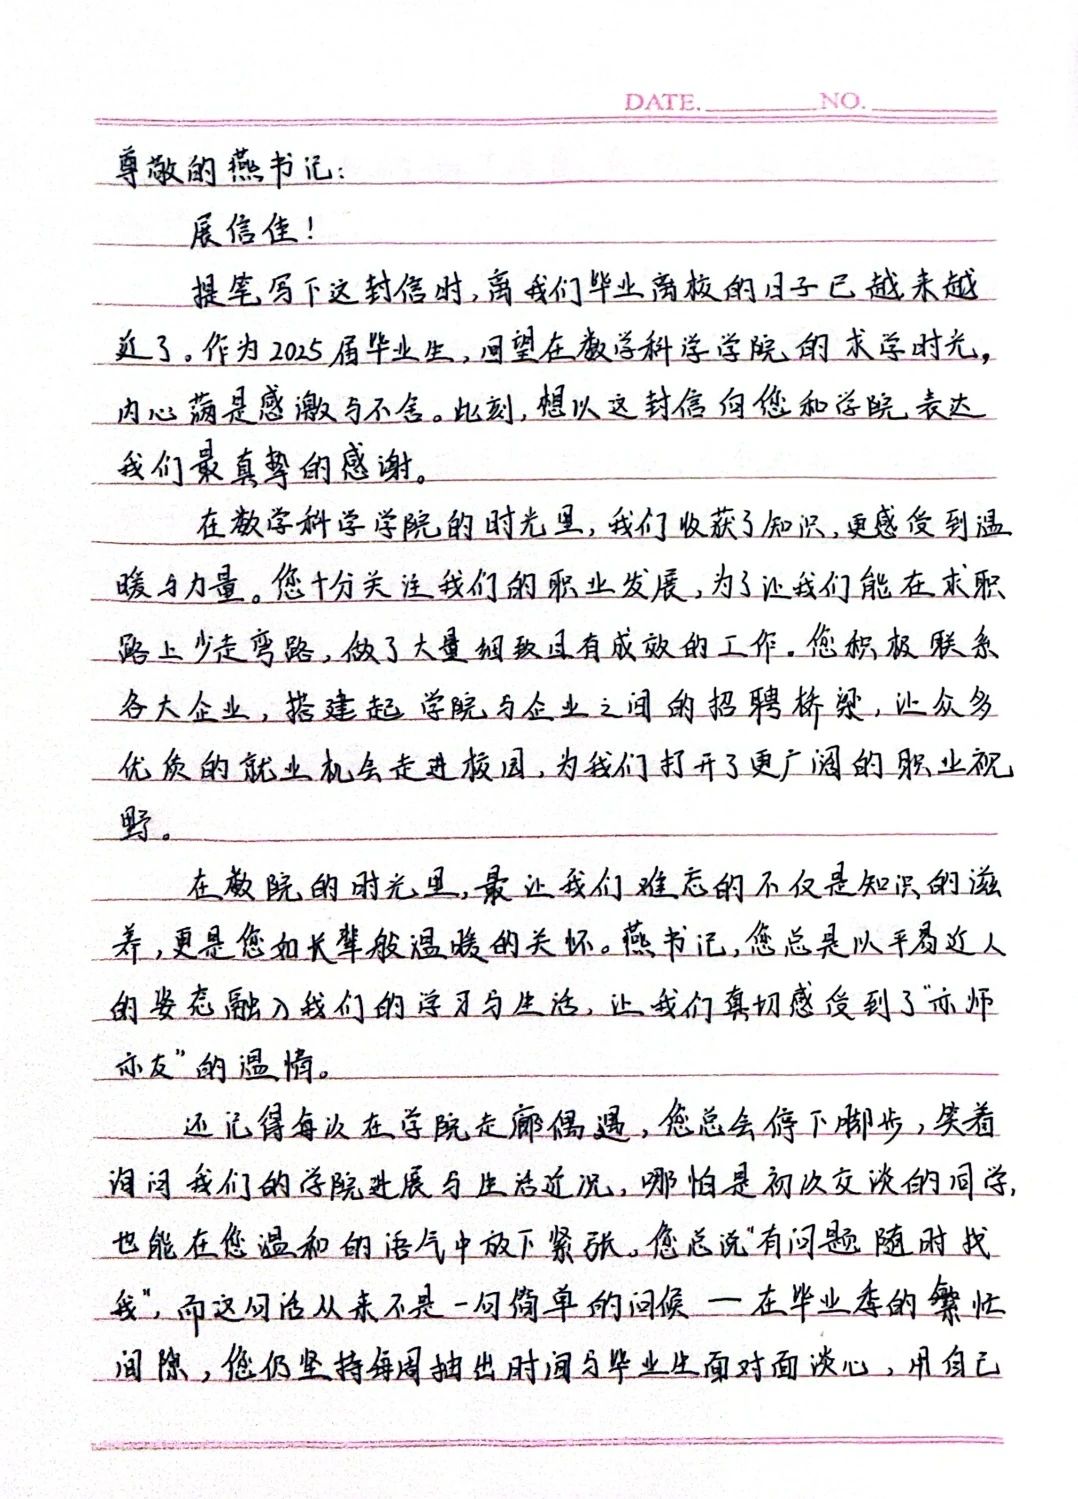 DATE. NO.
尊敬的燕书记：
展信佳！
提笔写下这封信时，离我们毕业离校的日子已越来越
近了。作为2025届毕业生，回望在数学科学学院的求学时光，
内心满是感激与不舍。此刻，想以这封信向您和学院表达
我们最真挚的感谢。
在数学科学学院的时光里，我们收获了知识，更感受到温
暖与力量。您十分关注我们的职业发展，为了让我们能在求职
路上少走弯路，做了大量细致且有成效的工作。您积极联系
各大企业，搭建起学院与企业之间的招聘桥梁，让众多
优质的就业机会走进校园，为我们打开了更广阔的职业视
野。
在数院的时光里，最让我们难忘的不仅是知识的滋
养，更是您如长辈般温暖的关怀。燕书记，您总是以平易近人
的姿态融入我们的学习与生活，让我们真切感受到了“亦师
亦友”的温情。
还记得每次在学院走廊偶遇，您总会停下脚步，笑着
询问我们的学院进展与生活近况，哪怕是初次交谈的同学，
也能在您温和的语气中放下紧张。您总说“有问题随时找
我”，而这句话从来不是一句简单的问候—在毕业季的繁忙
间隙，您仍坚持每周抽出时间与毕业生面对面谈心，用自己